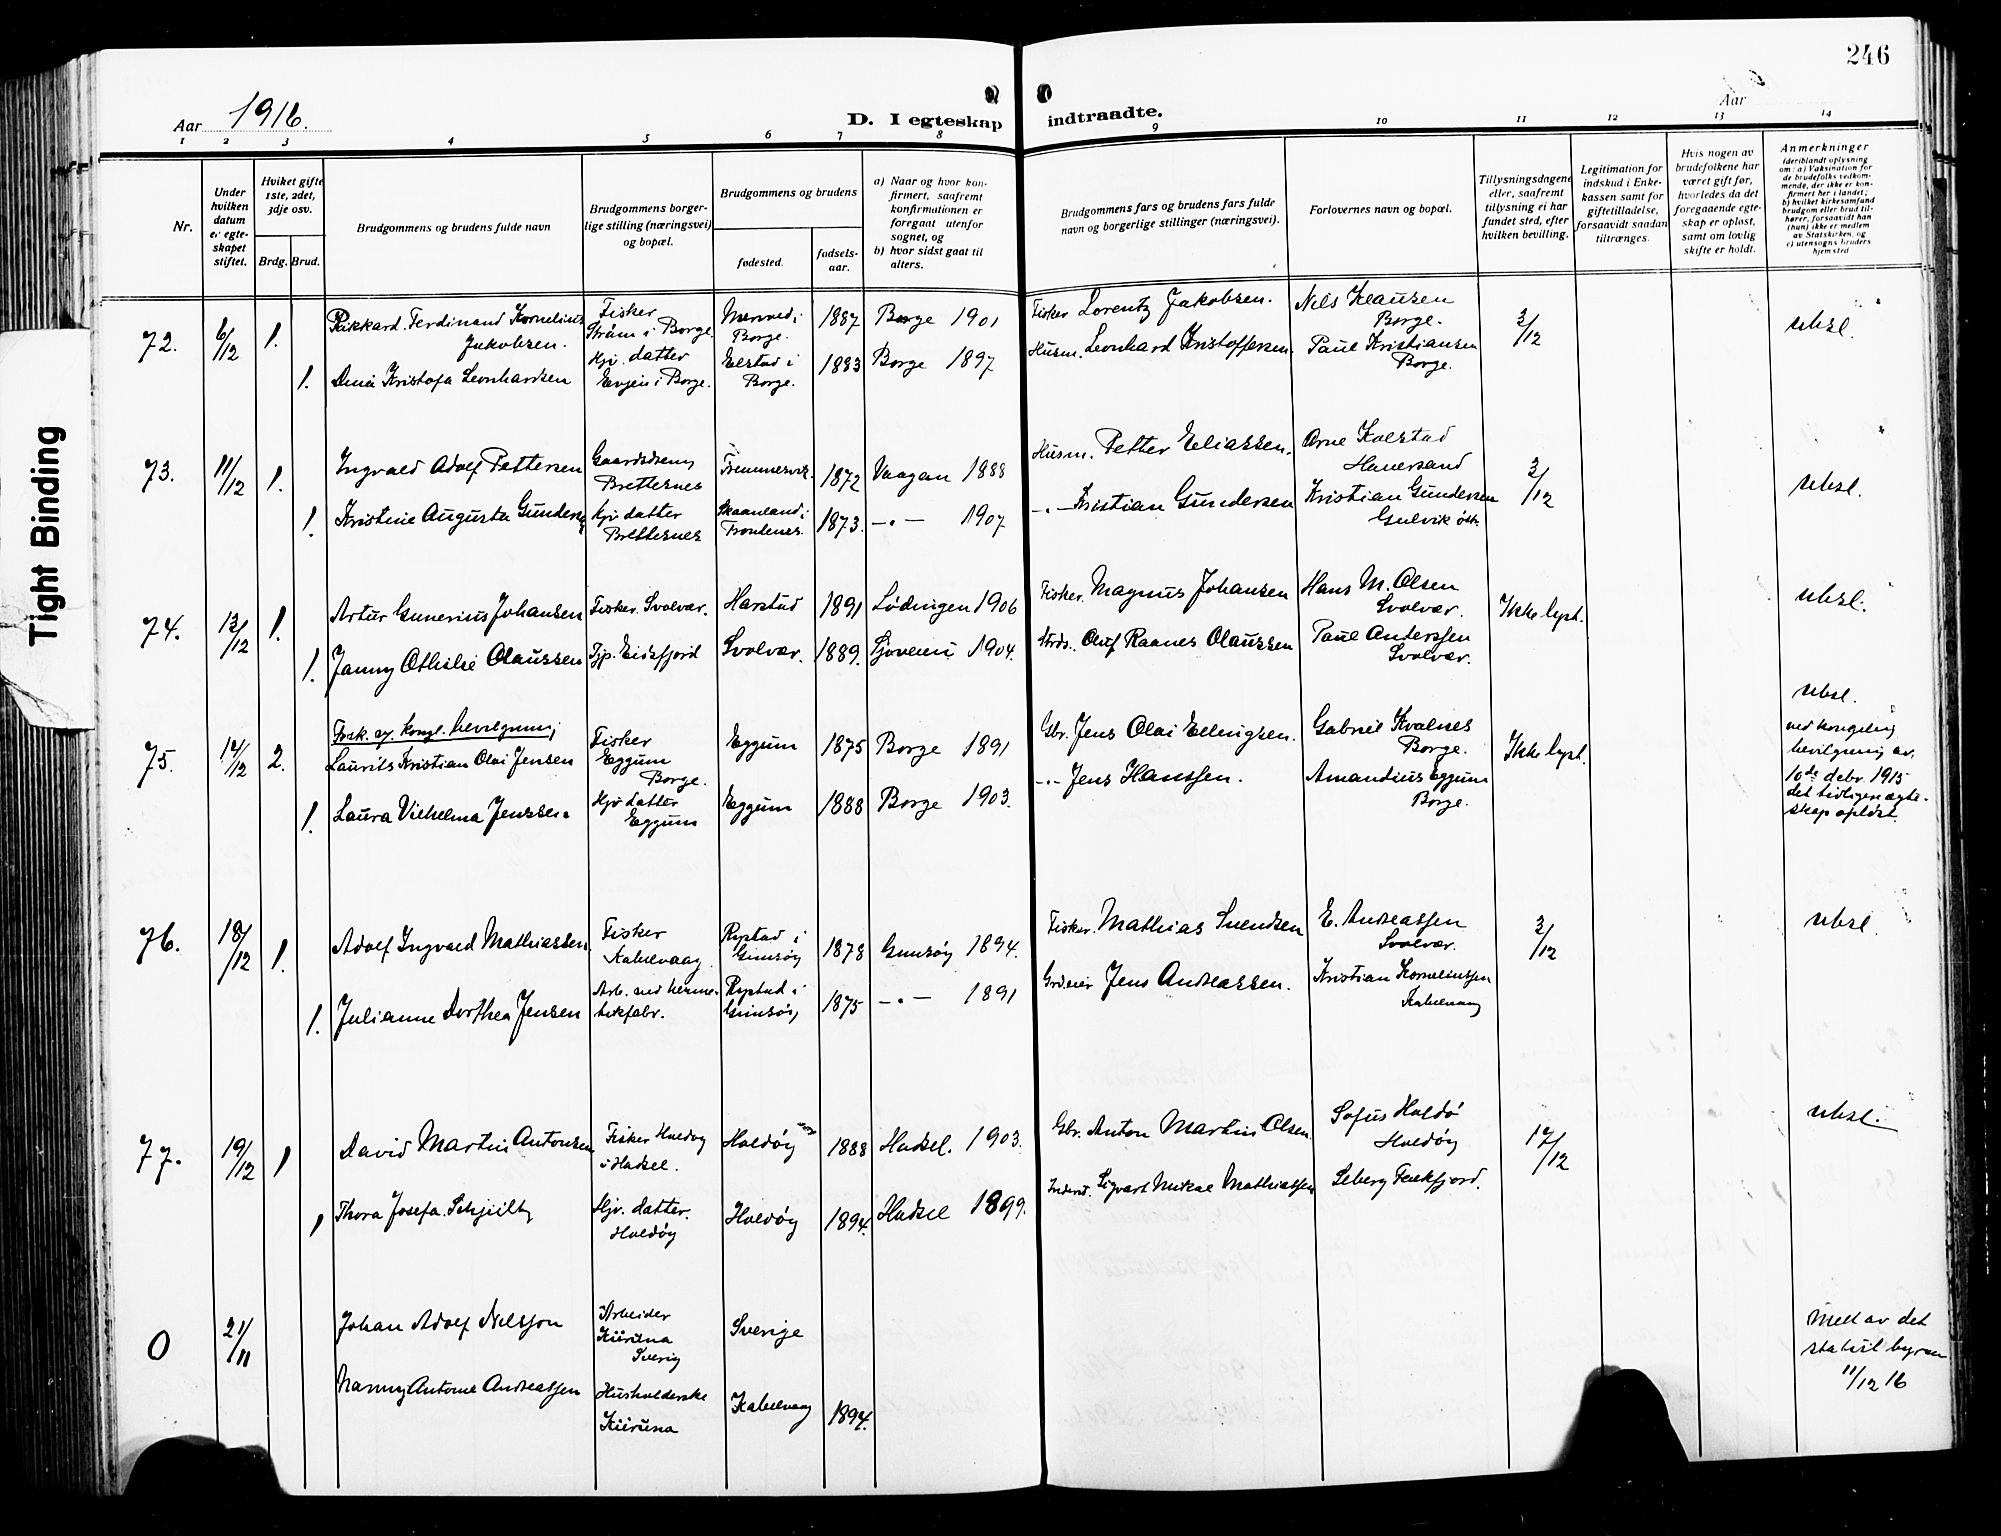 Tight Binding
246
Aar 1916.
D. I egteskap
indtraadte.
Aar
1 2 3 4 5 6 7 8 9 10 11 12 13 14
Nr.
Under hvilken datum er egteskapet stiftet.
Hviket gifte 1ste, 2det, 3dje osv.
Brdg. Brud.
Brudgommens og brudens fulde navn
Brudgommens borgerlige stilling (næringsvei) og bopæl.
Brudgommens og brudens
fødested.
fødselsaar.
a) Naar og hvor konfirmert, saafremt konfirmationen er foregaat utenfor sognet, og
b) hvor sidst gaat til alters.
Brudgommens fars og brudens fars fulde navn og borgerlige stillinger (næringsvei).
Forlovernes navn og bopæl.
Tillysningsdagene eller, saafremt tillysning ei har fundet sted, efter hvilken bevilling.
Legitimation for indskud i Enkekassen samt for giftetilladelse, forsaavidt saadan tiltrænges.
Hvis nogen av brudefolkene har været gift før, hvorledes da det foregaaende egteskap er opløst, samt om lovlig skifte er holdt.
Anmerkninger
(deriblandt oplysning om: a) Vaksination for de brudefolks vedkommende, der ikke er konfirmert her i landet; b) hvilket kirkesamfund brudgom eller brud tilhører, forsaavidt han (hun) ikke er medlem av Statskirken, og c) utensogns bruders hjemsted
72. 6/12 1. Rikkard Ferdinand Kornelius Jakobsen. Fisker Strøm i Borge. Borge. 1887 Borge 1901 Fisker Lorentz Jakobsen. Nils Klausen Borge. 3/12 ubsl.
1. Dina Kristofa Leonhardsen Hjv. datter Evjen i Borge. Elstad i Borge. 1883 Borge 1897 Husm. Leonhard Kristoffersen. Paul Kristiansen Borge.
73. 11/12 1. Ingvald Adolf Pettersen Brettesnes 1872 Vaagan 1888 Husm. Petter Eliassen. Arne Kolstad 3/12 ubsl.
1. Kristine Augusta Gundersen Hjv datter Brettesnes Skaanland i Trondenes. 1873. -"- 1907 -"- Kristian Gundersen Kristian Gundersen
74. 13/12 1. Artur Gunerius Johansen Fisker. Svolvær. Harstad 1891 Lødingen 1906 Fisker. Magnus Johansen Hans M. Olsen Svolvær. Ikke lyst. ubsl.
1. Janny Othilie Olaussen Tjp. Eidsfjord Svolvær. 1889. 1904. Oluf Raanes Olaussen Paul Anderssen Svolvær.
75. 12. Frask. eg. kongl. bevilgning
17/12 2. Laurits Kristian Olai Jensen Fisker Eggum Borge. Eggum 1875 Borge 1891 Gbr. Jens Olai Ellingsen. Gabriel Kvalnes Borge. Ikke lyst. ubsl.
ved kongelig bevilgning av 10de debr. 1915 det tidligere egteskap opløst.
1. Laura Vilhelma Jenssen Hjv datter Eggum Eggum 1888 Borge 1903. -"- Jens Hanssen. Amandius Eggum Borge.
76. 18/12 1. Adolf Ingvald Mathiassen Fisker Kabelvaag Rystad i Gimsøy 1878 Gimsøy 1894. Fisker. Mathias Svendsen E. Andreassen Svolvær. 3/12 ubsl.
1. Julianne Dorthea Jensen Arb. ved hermetikfabr. Rystad i Gimsøy 1875 -"- 1891 Grdeier Jens Andreassen. Kristian Korneliussen Kabelvaag
77. 19/12 1 David Martin Antonsen Fisker Holdøy i Hadsel. Holdøy 1888 Hadsel. 1903. Gbr. Anton Martin Olsen. Sofus Holdø Holdøy 17/12 ubsl.
1 Thora Josefa Schjelby Hjv. datter. Holdøy Holdøy 1894. Hadsel 1899. Inderst. Sigvart Mikal Mathiassen Seberg
0 21/11 Johan Adolf Nilsson Arbeider Kiiruna Sverig Sverige Meld av det statist. byraa 11/12 16
Nanny Antonie Andreassen Husholderske Kiiruna Kabelvaag 1894.